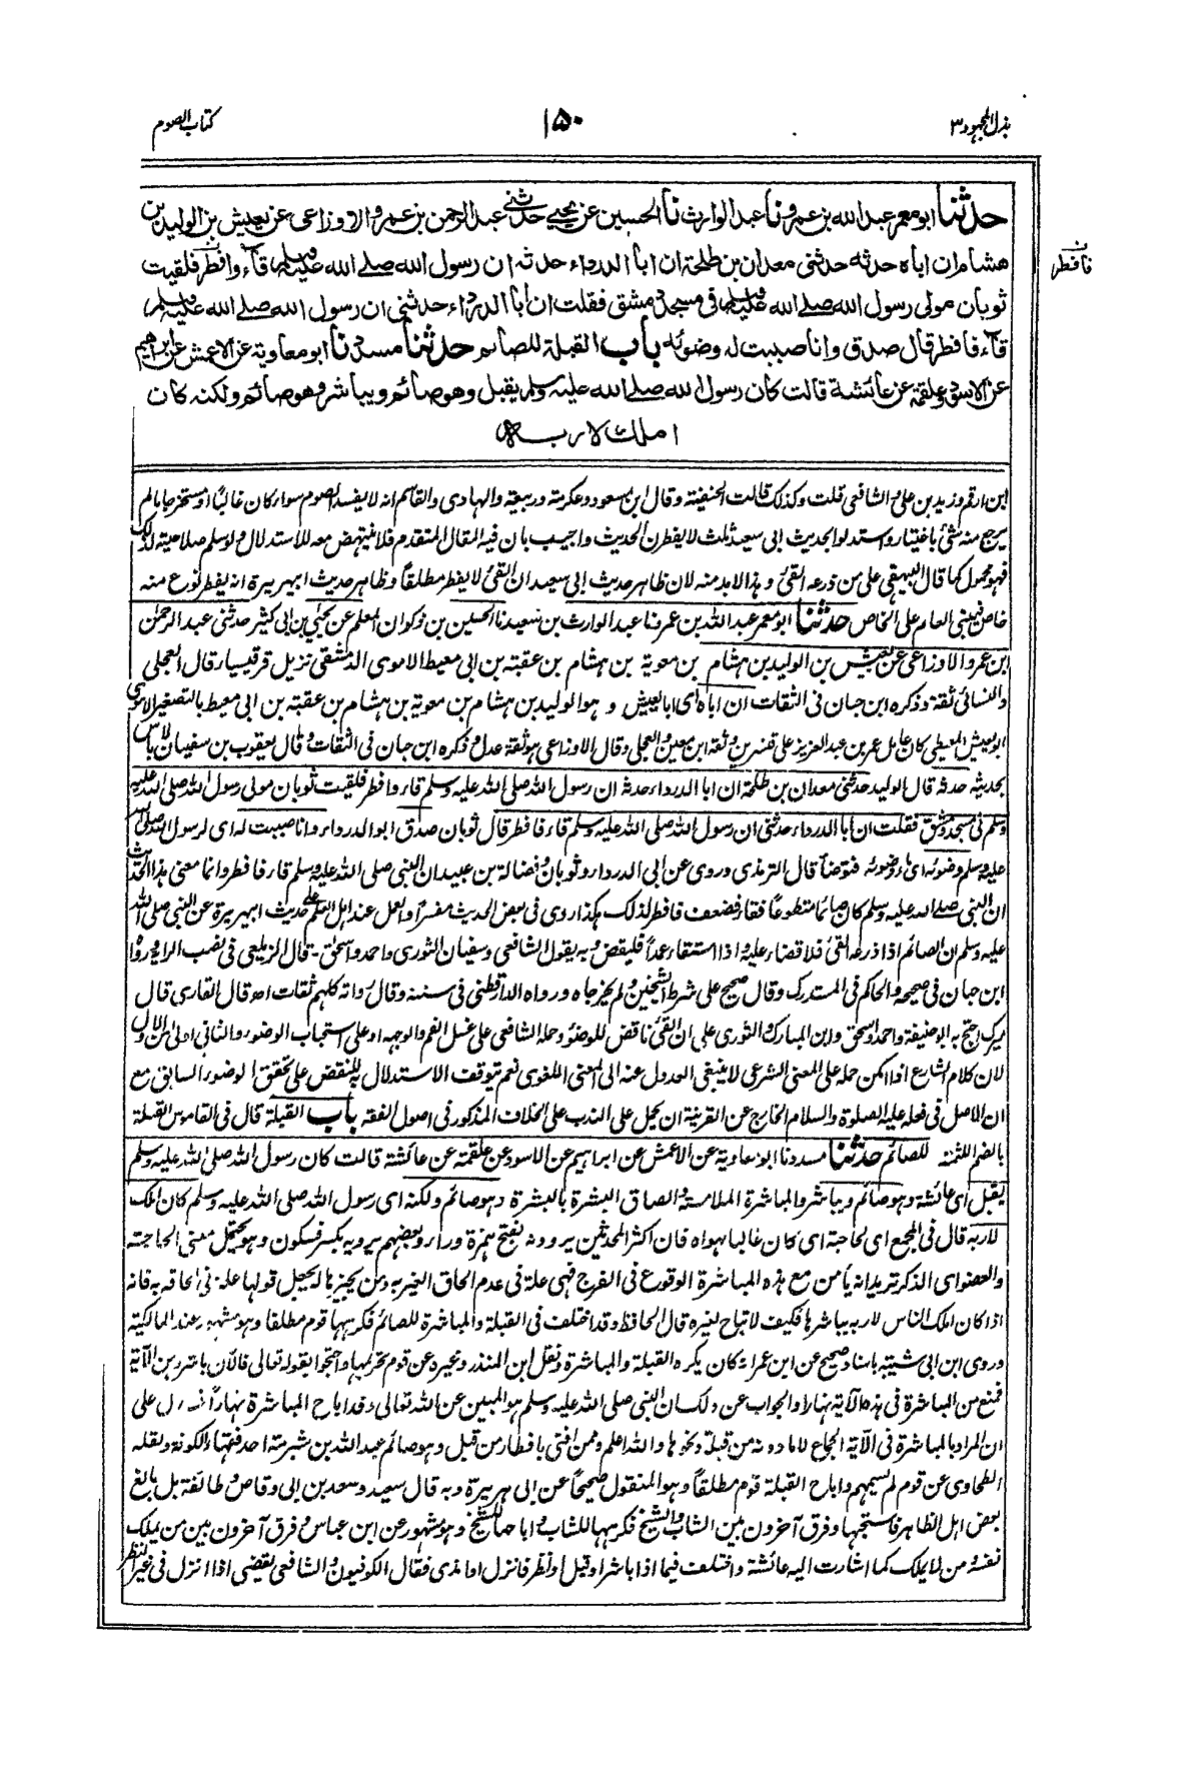 بذل المجهود ٣
١٥٠
كتاب الصوم
حدثنا ابو معمر عبد الله بن عمرو نا عبد الوارث نا الحسين عن يحيى حدثني عبد الرحمن بن عمرو الاوزاعى عن يعيش بن الوليد بن
هشام ان اباه حدثه حدثنى معدان بن طلحة ان ابا الدرداء حدثه ان رسول الله صلے الله عليه وسلم قاء وافطر فلقيت
ن
فافطر
ثوبان مولى رسول الله صلے الله عليه وسلم فى مسجد دمشق فقلت ان ابا الدرداء حدثنى ان رسول الله صلے الله عليه وسلم
قاء فافطر قال صدق وانا صببت له وضوئه باب القبلة للصائم حدثنا مسدد نا ابو معاوية عن الاعمش عن ابراهيم
عن الاسود وعلقمة عن عائشة قالت كان رسول الله صلے الله عليه وسلم يقبل وهو صائم ويباشر وهو صائم ولكنه كان
املك لاربه
ابن ارقم وزيد بن على والشافعى قلت وكذلك قالت الحنفية وقال ابن مسعود وعكرمة وربيعة والهادى والقاسم انه لا يفسد الصوم سواء كان غالبًا او مستخرجا ما لم
يرجع منه شئ باختياره واستدلوا بحديث ابى سعيد ثلث لا يفطرن الحديث واجيب بان فيه المقال المتقدم فلا ينتهض معه للاستدلال ولو سلم صلاحية لذلك
فهو محمول كما قال البيهقى على من ذرعه القئ وهذا لا بد منه لان ظاهر حديث ابى سعيد ان القئ لا يفطر مطلقاً وظاهر حديث ابى هريرة انه يفطر نوع منه
خاص فيبنى العام على الخاص حدثنا ابو معمر عبد الله بن عمر نا عبد الوارث بن سعيد نا الحسين بن ذكوان المعلم عن يحيى بن ابى كثير حدثنى عبد الرحمن
ابن عمرو الاوزاعى عن يعيش بن الوليد بن هشام بن معوية بن هشام بن عقبة بن ابى معيط الاموى الدمشقى نزيل قرقيسياء قال العجلى
والنسائى ثقة وذكره ابن حبان فى الثقات ان اباه اى ابا يعيش و هو الوليد بن هشام بن معوية بن هشام بن عقبة بن ابى معيط بالتصغير الاموى
ابو يعيش المعيطى كان عامل عمر بن عبد العزيز على قنسرين وثقه ابن معين والعجلى وقال الاوزاعى هو ثقة عدل وذكره ابن حبان فى الثقات وقال يعقوب بن سفيان لا باس
بحديثه حدثه قال الوليد حدثنى معدان بن طلحة ان ابا الدرداء حدثه ان رسول الله صلى الله عليه وسلم قاء وافطر فلقيت ثوبان مولى رسول الله صلى الله عليه
وسلم فى مسجد دمشق فقلت ان ابا الدرداء حدثنى ان رسول الله صلى الله عليه وسلم قاء فافطر قال ثوبان صدق ابو الدرداء وانا صببت له اى لرسول الله صلى الله
عليه وسلم وضوئه اى وضوئه فتوضأ قال الترمذى وروى عن ابى الدرداء وثوبان وفضالة بن عبيد ان النبى صلى الله عليه وسلم قاء فافطر وانما معنى هذا الحديث
ان النبى صلے الله عليه وسلم كان صائما متطوعًا فقاء فضعف فافطر لذلك هكذا روى فى بعض الحديث مفسراً والعمل عند اهل العلم على حديث ابى هريرة عن النبى صلى الله
عليه وسلم ان الصائم اذا ذرعه القئ فلا قضاء عليه واذا استقاء عمداً فليقض وبه يقول الشافعى وسفيان الثورى واحمد واسحق۔ قال الزيلعى فى نصب الراية ورواه
ابن حبان فى صحيحه والحاكم فى المستدرك وقال صحيح على شرط الشيخين ولم يخرجاه ورواه الدارقطنى فى سننه وقال رواته كلهم ثقات اھ وقال القارى قال
ميرك احتج به ابو حنيفة واحمد واسحق وابن المبارك والثورى على ان القئ ناقض للوضوء وحمله الشافعى على غسل الفم والوجه او على استحباب الوضوء والثانى اولى من الاول
لان كلام الشارع اذا امكن حمله على المعنى الشرعى لا ينبغى العدول عنه الى المعنى اللغوى نعم توقف الاستدلال به للنقض على تحقق الوضوء السابق مع
ان الاصل فى فعله عليه الصلوة والسلام الخارج عن القرينة ان يحمل على الندب على الخلاف المذكور فى اصول الفقه باب القبلة قال فى القاموس القبلة
بالضم اللثمة للصائم حدثنا مسدد نا ابو معاوية عن الاعمش عن ابراهيم عن الاسود عن علقمة عن عائشة قالت كان رسول الله صلى الله عليه وسلم
يقبل اى عائشة وهو صائم ويباشر والمباشرة الملامسة والصاق البشرة بالبشرة وهو صائم ولكنه اى رسول الله صلى الله عليه وسلم كان املك
لاربه قال فى المجمع اى لحاجته اى كان غالبا لهواه فان اكثر المحدثين يروونه بفتح همزة وراء وبعضهم يرويه بكسر فسكون وهو يحتمل معنى الحاجة
والعضو اى الذكر تريد انه يأمن مع هذه المباشرة الوقوع فى الفرج فهى علة فى عدم الحاق الغير به ومن يجيزها له يجعل قولها علة فى الحاقه به فانه
اذا كان املك الناس لاربه يباشرها فكيف لا تباح لغيره قال الحافظ وقد اختلف فى القبلة والمباشرة للصائم فكرهها قوم مطلقا وهو مشهور عند المالكية
وروى ابن ابى شيبة باسناد صحيح عن ابن عمر انه كان يكره القبلة والمباشرة ونقل ابن المنذر وغيره عن قوم تحريمها واحتجوا بقوله تعالى فالآن باشروهن الآية
فمنع من المباشرة فى هذه الآية نهارا والجواب عن ذلك ان النبى صلى الله عليه وسلم هو المبين عن الله تعالى وقد اباح المباشرة نهاراً فدل على
ان المراد بالمباشرة فى الآية الجماع لا ما دونه من قبلة ونحوها والله اعلم وممن افتى بافطار من قبل وهو صائم عبد الله بن شبرمة احد فقهاء الكوفة ونقله
الطحاوى عن قوم لم يسمهم واباح القبلة قوم مطلقاً وهو المنقول صحيحًا عن ابى هريرة وبه قال سعيد وسعد بن ابى وقاص وطائفة بل بالغ
بعض اهل الظاهر فاستحبها وفرق آخرون بين الشاب والشيخ فكرهها للشاب واباحها للشيخ وهو مشهور عن ابن عباس وفرق آخرون بين من يملك
نفسه ومن لا يملك كما اشارت اليه عائشة واختلف فيما اذا باشر او قبل او نظر فانزل او امذى فقال الكوفيون والشافعى يقضى اذا انزل فى غير النظر